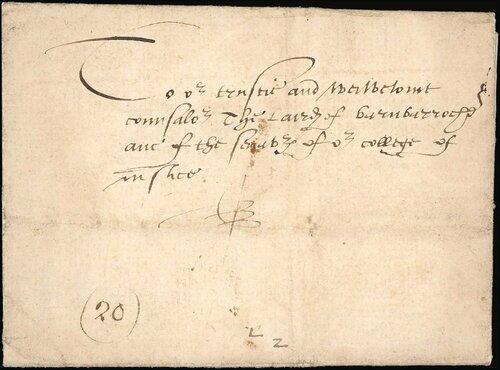 To or trustie and weilwelouit
counsalor The Laird of barnbarroche
ane of the senatrs of or college of
iustice
20